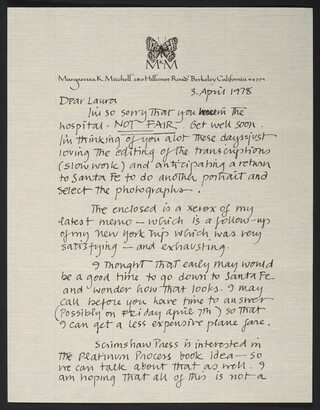 M M
Margaretta K. Mitchell 280 Hillcrest Road Berkeley California 94705
3. April 1978
Dear Laura
I'm so sorry that you were in the
hospital - NOT FAIR Get well soon.
I'm thinking of you a lot these days just
loving the editing of the transcriptions
(slow work) and anticipating a return
to Santa Fe to do another portrait and
select the photographs.
The enclosed is a xerox of my
latest memo - which is a follow-up
of my New York trip which was very
satisfying - and exhausting.
I thought that early may would
be a good time to go down to Santa Fe.
and wonder how that looks. I may
call before you have time to answer
(possibly on Friday april 7th) so that
I can get a less expensive plane fare.
Scrimshaw Press is interested in
the Platinum Process book idea - so
we can talk about that as well. I
am hoping that all of this is not a